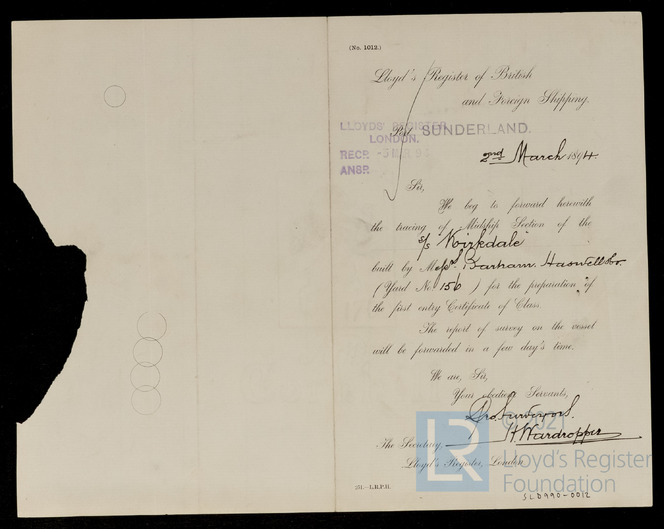 (No. 1012.)
Lloyd's Register of British
and Foreign Shipping.
LLOYDS' REGISTER
LONDON.
RECD
ANSR
Port SUNDERLAND.
2nd March 1894.
Sir,
We beg to forward herewith
the tracing of Midship Section of the
s/s "Kirkdale"
built by Messrs
(Yard No. 156) for the preparation of
the first entry Certificate of Class.
The report of survey on the vessel
will be forwarded in a few day's time.
We are, Sir,
Your obedient Servants,
Pro Surveyors.
H Wardropper
The Secretary,
Lloyd's Register, London.
2M.—L.R.P.H.
LR
© 2021
Lloyd's Register
Foundation
SLD990-0012